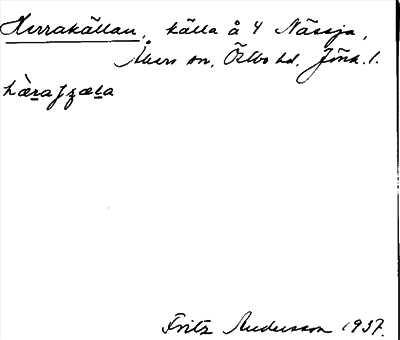 Herrakällan, källa å 4 Nässja,
Åkers sn, Östbo hd. Jönk. l.
Fritz Andersson 1937.